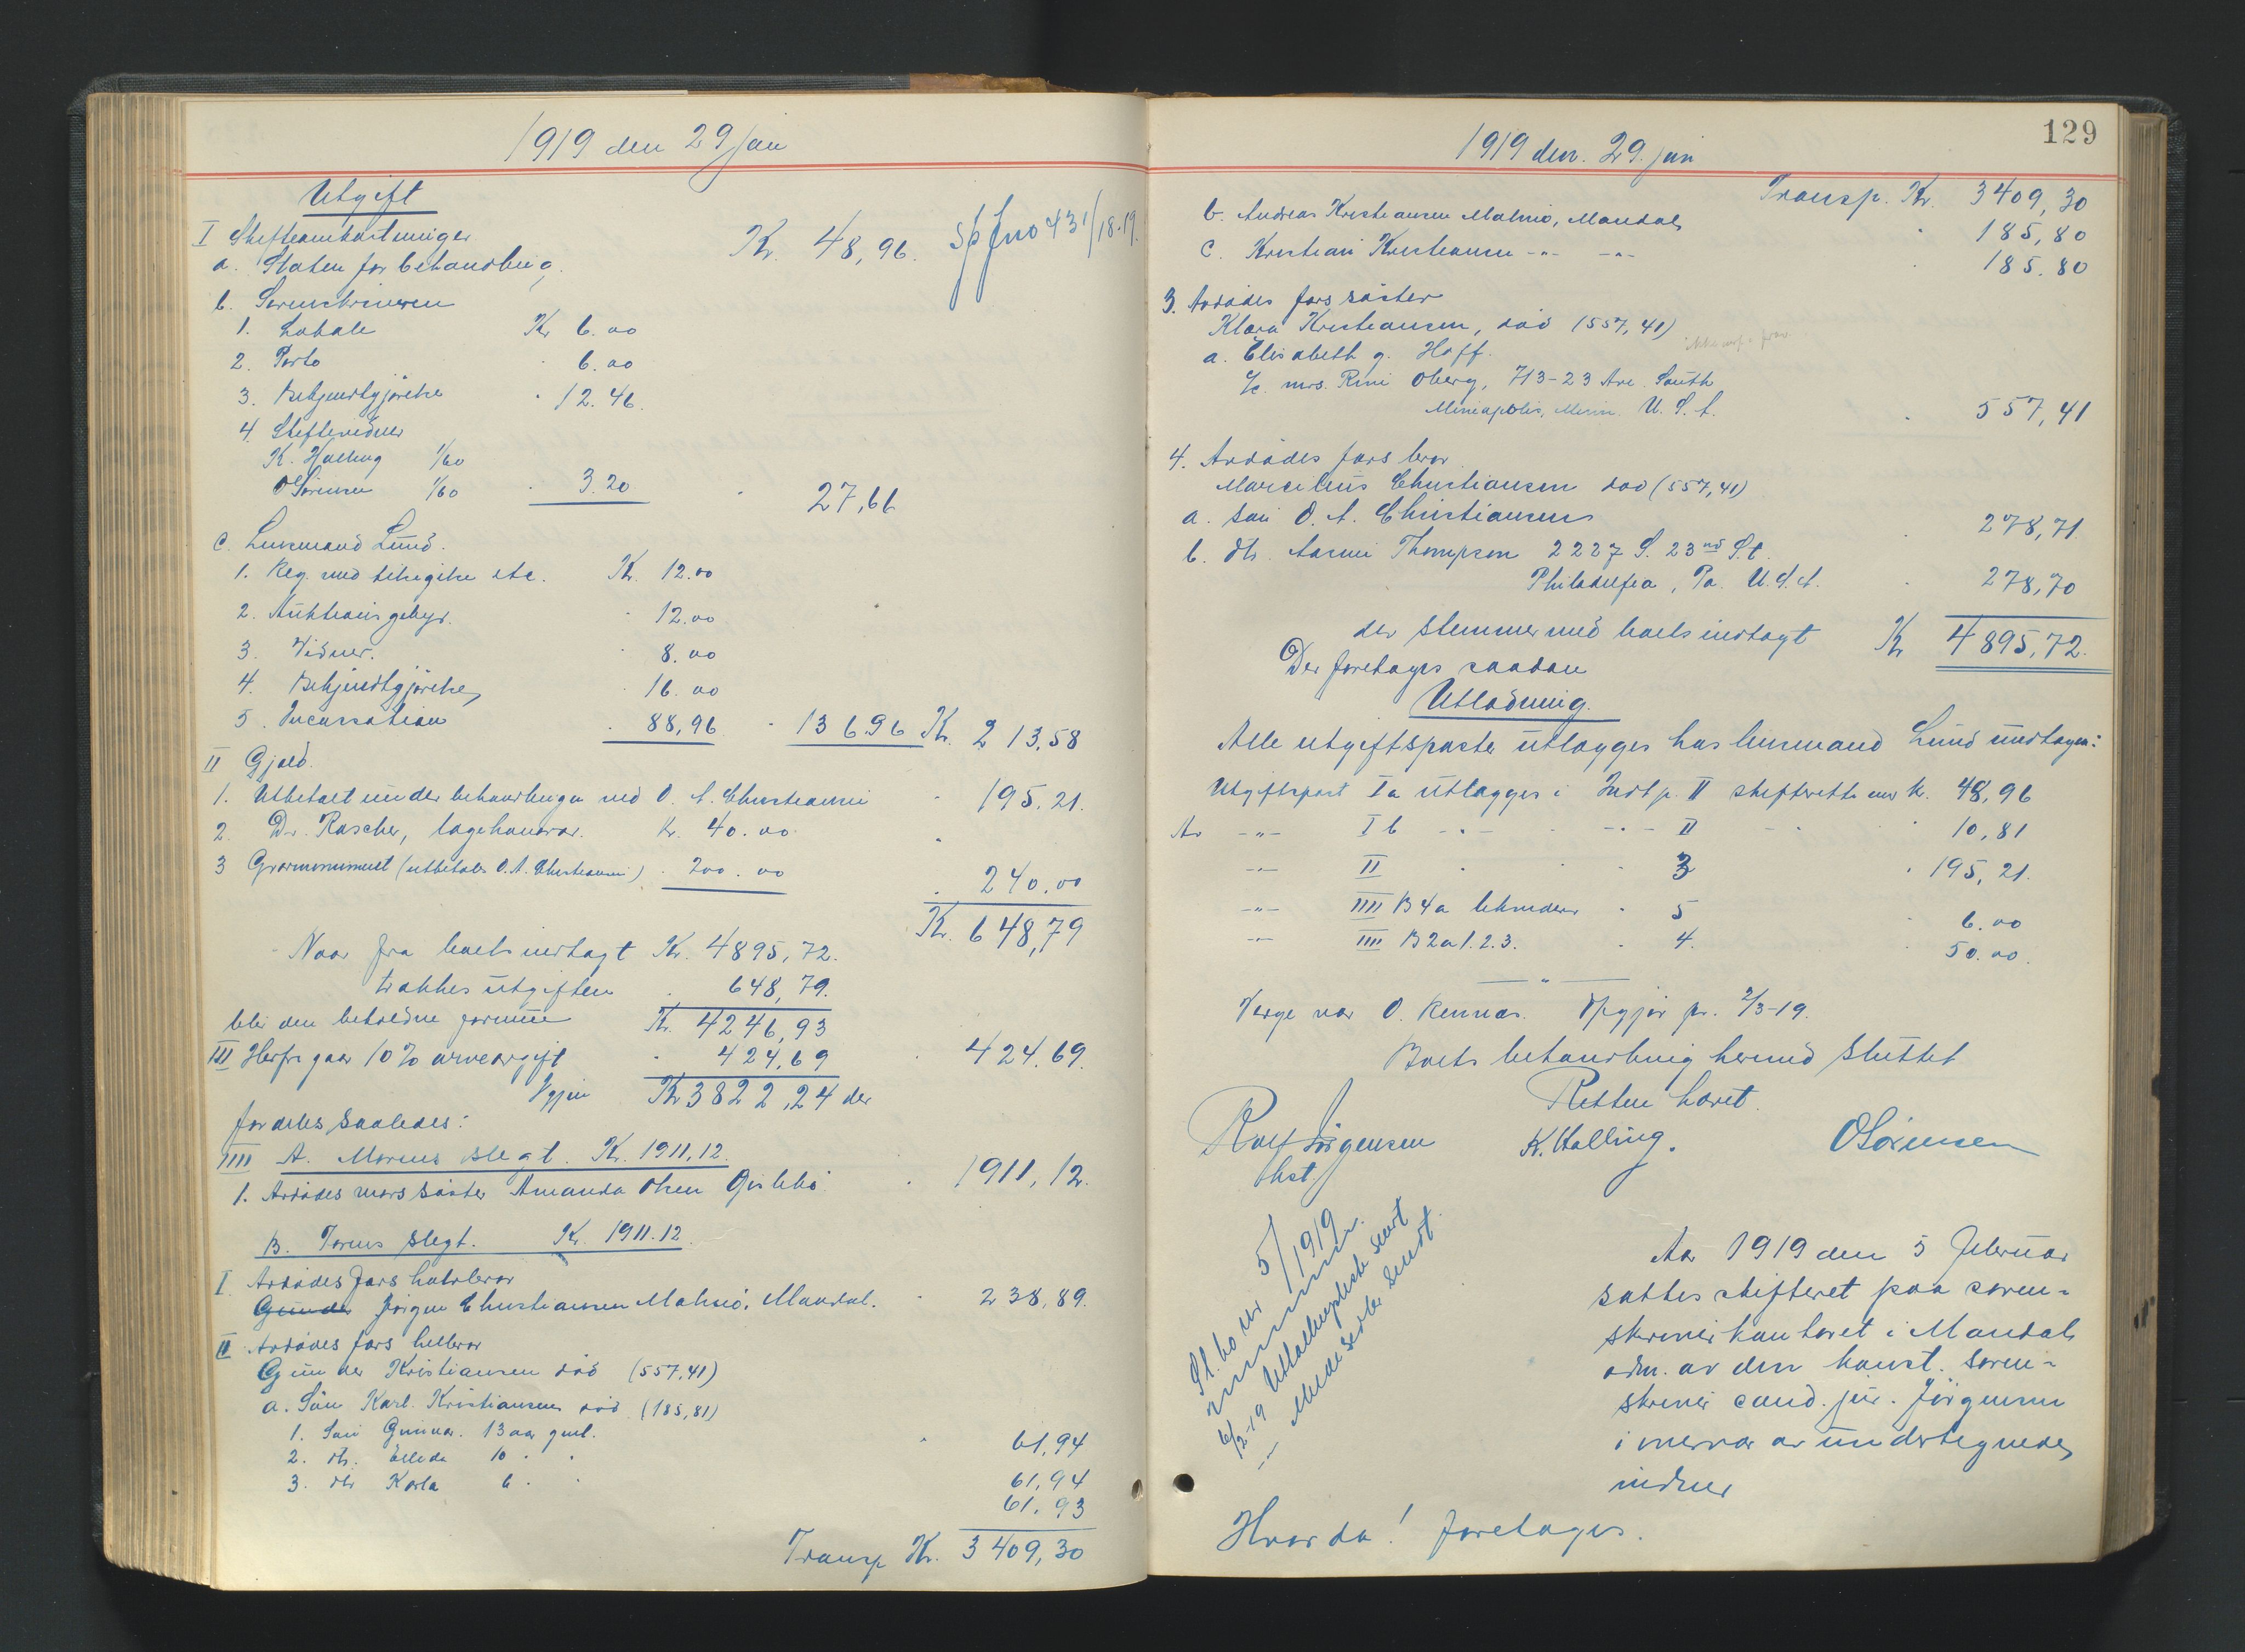 1919 den 29 jan
Utgift
I Skifteomkostninger
a. Staten for behandling Kr. 48,96. Sp. Jno 431/18-19.
b. Sorenskriveren
1. Lokale Kr 6.00
2. Porto 6.00
3. Bekjendtgjørelse 12.46
4. Skiftevidner
K. Kalling 1/60
O Sørensen 1/60 3.20 27,66
c. Lensmand Lund.
1. Reg. med tilsigelse etc. Kr. 12.00
2. Auktionsgebyr. 12.00
3. Vidner. 8.00
4. Bekjendtgjørelse 16.00
5. Incassation 88,96 136 96 Kr. 213,58
II Gjæld.
1. Utbetalt under behandlingen ved O. A. Christiansen 195.21.
2. Dr. Rascher, lægehonorar. Kr. 40.00
3 Gravmonument (utbetales O. A. Christiansen) 200.00 240.00
Kr. 648,79
Naar fra boets indtægt Kr. 4895,72.
trækkes utgiften 648,79.
blir den beholdne formue Kr. 4246,93
III Herfra gaar 10% arveavgift 424,69 424.69.
Igjen Kr 3822,24 der
fordeles saaledes:
IIII A. Morens slegt. Kr. 1911,12.
1. Avdødes mors søster Amanda Olsen Gislebø 1911,12.
B. Farens slegt. Kr. 1911.12
I. Avdødes fars halvbror
Gunder Jørgen Christiansen Malmø, Mandal. 238,89.
II Avdødes fars helbror
Gunder Kristiansen død (557,41)
a. Søn Karl Kristiansen død (185,81)
1. Søn Gunnar. 13 aar gml. 61,94
2. dtr. Ellida 10 " " 61,94
3. dtr Karla 6 " " 61,93
Transp Kr. 3409,30
129
1919 den. 29. jan
Transp. Kr. 3409,30
b. Andreas Kristiansen Malmø, Mandal 185,80
c. Kristian Kristiansen -"- -"- 185.80
3. Avdødes fars søster
Klara Kristiansen, død (557,41)
a. Elisabeth g. Hoff.
c/o mrs. Rini Oberg, 713-23 Ave. South
Mineapolis, Minn. U.S.A. 557,41
4. Avdødes fars bror
Marcelius Christiansen død (557,41)
a. søn O. A. Christiansen 278,71
b. dtr. Asmi Thompson 2227 S. 23nd St.
Philadelfia, Pa. U.S.A. 278,70
der stemmer med boets indtægt Kr 4895,72.
Der foretages saadan
Utlodning.
Alle utgiftsposter utlægges hos lensmand Lund undtagen:
Utgiftspost Ia utlægges i Indt p. II skifteretten med kr. 48,96
Av -"- I b -"- -"- II " 10,81
-"- II " 3 195,21.
-"- IIII B 4 a 5 6.00
-"- IIII B 2 a 1. 2. 3. 4. 50.00.
Verge var O. Rennæs. Opgjør pr. 2/3-19.
Boets behandling hermed sluttet
Retten hævet.
Rolf Jørgensen K. Kalling. O Sørensen
kst.
Sl. bo nr 5/1919
6/2-19 Utlodningsliste sendt
-"- Meddelelse sendt.
Aar 1919 den 5 februar
sattes skifteret paa soren=
skriverkontoret i Mandal
adm. av den konst. soren=
skriver cand. jur. Jørgensen
i nærvær av undertegnede
vidner
Hvorda! foretages.